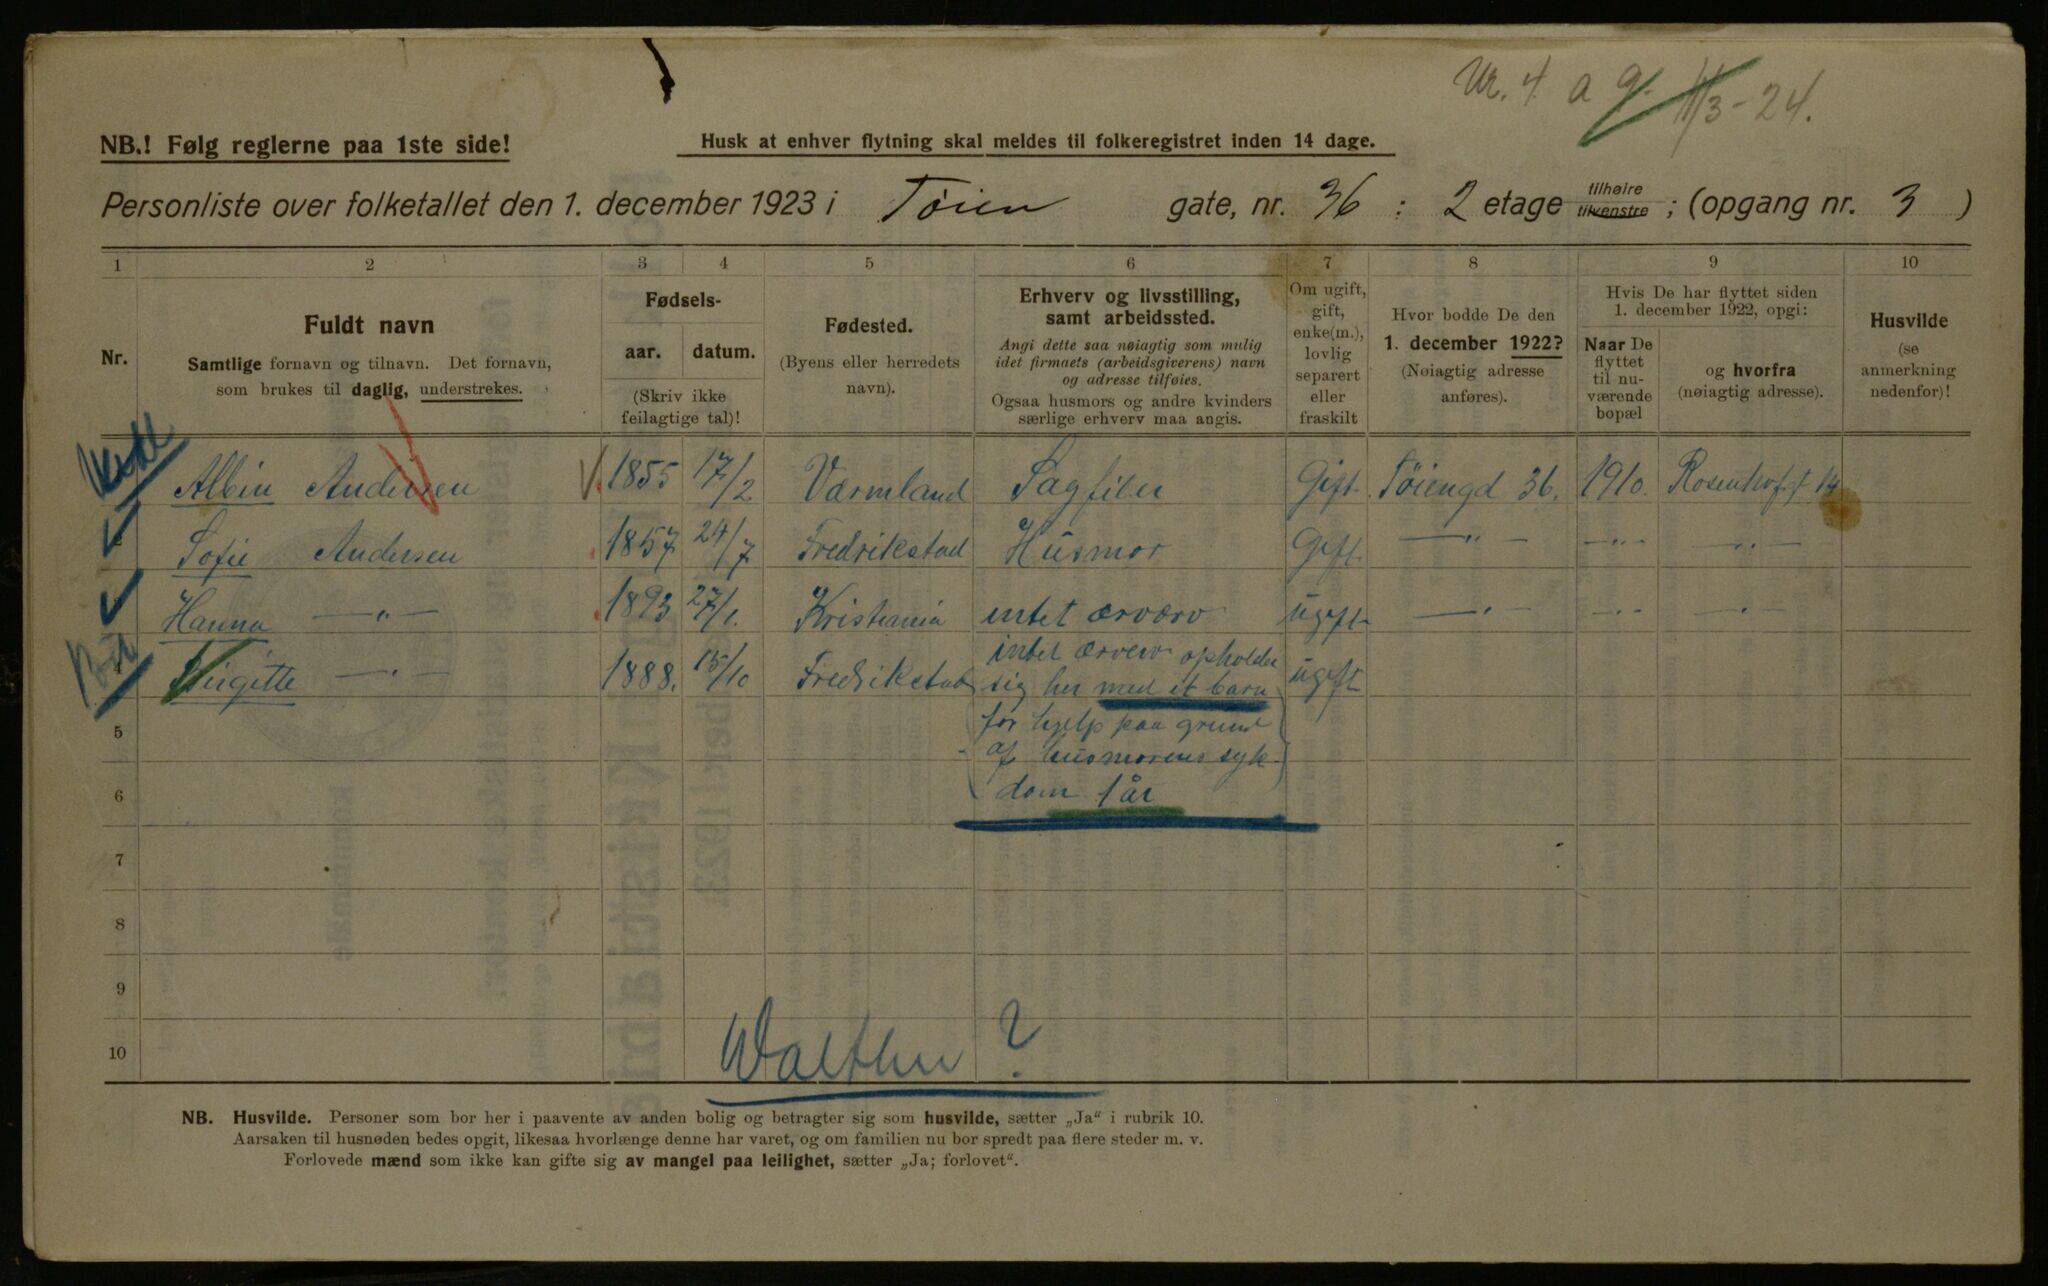 Nr. 4 a g. 11/3-24.
NB.! Følg reglerne paa 1ste side!
Husk at enhver flytning skal meldes til folkeregistret inden 14 dage.
Personliste over folketallet den 1. december 1923 i Tøien gate, nr. 36 : 2 etage tilhøire tilvenstre ; (opgang nr. 3 )
1 2 3 4 5 6 7 8 9 10
Nr.
Fuldt navn
Samtlige fornavn og tilnavn. Det fornavn,
som brukes til daglig, understrekes.
Fødsels-
aar. datum.
(Skriv ikke
feilagtige tal)!
Fødested.
(Byens eller herredets
navn).
Erhverv og livsstilling,
samt arbeidssted.
Angi dette saa nøiagtig som mulig
idet firmaets (arbeidsgiverens) navn
og adresse tilføies.
Ogsaa husmors og andre kvinders
særlige erhverv maa angis.
Om ugift,
gift,
enke(m.),
lovlig
separert
eller
fraskilt
Hvor bodde De den
1. december 1922?
(Nøiagtig adresse
anføres).
Hvis De har flyttet siden
1. december 1922, opgi:
Naar De
flyttet
til nu-
værende
bopæl
og hvorfra
(nøiagtig adresse).
Husvilde
(se
anmerkning
nedenfor)!
Albin Andersen 1855 17/2 Värmland Sagfiler Gift. Tøiengd 36. 1910. Rosenhofgt 14
2 Sofie Andersen 1857 24/7 Fredrikstad Husmor Gift. —"— —"— —"—
3 Hanna —"— 1893 27/1. Kristiania intet ærværv ugift —"— —"— —"—
4 Birgitte —"— 1888. 15/10 Fredrikstad intet ærverv opholder ugift
sig her med et barn
5 for hjelp paa grund
af husmorens syk-
6 dom 1 år
7
8
9
10
Walther ?
NB. Husvilde. Personer som bor her i paavente av anden bolig og betragter sig som husvilde, sætter „Ja“ i rubrik 10.
Aarsaken til husnøden bedes opgit, likesaa hvorlænge denne har varet, og om familien nu bor spredt paa flere steder m. v.
Forlovede mænd som ikke kan gifte sig av mangel paa leilighet, sætter „Ja; forlovet“.